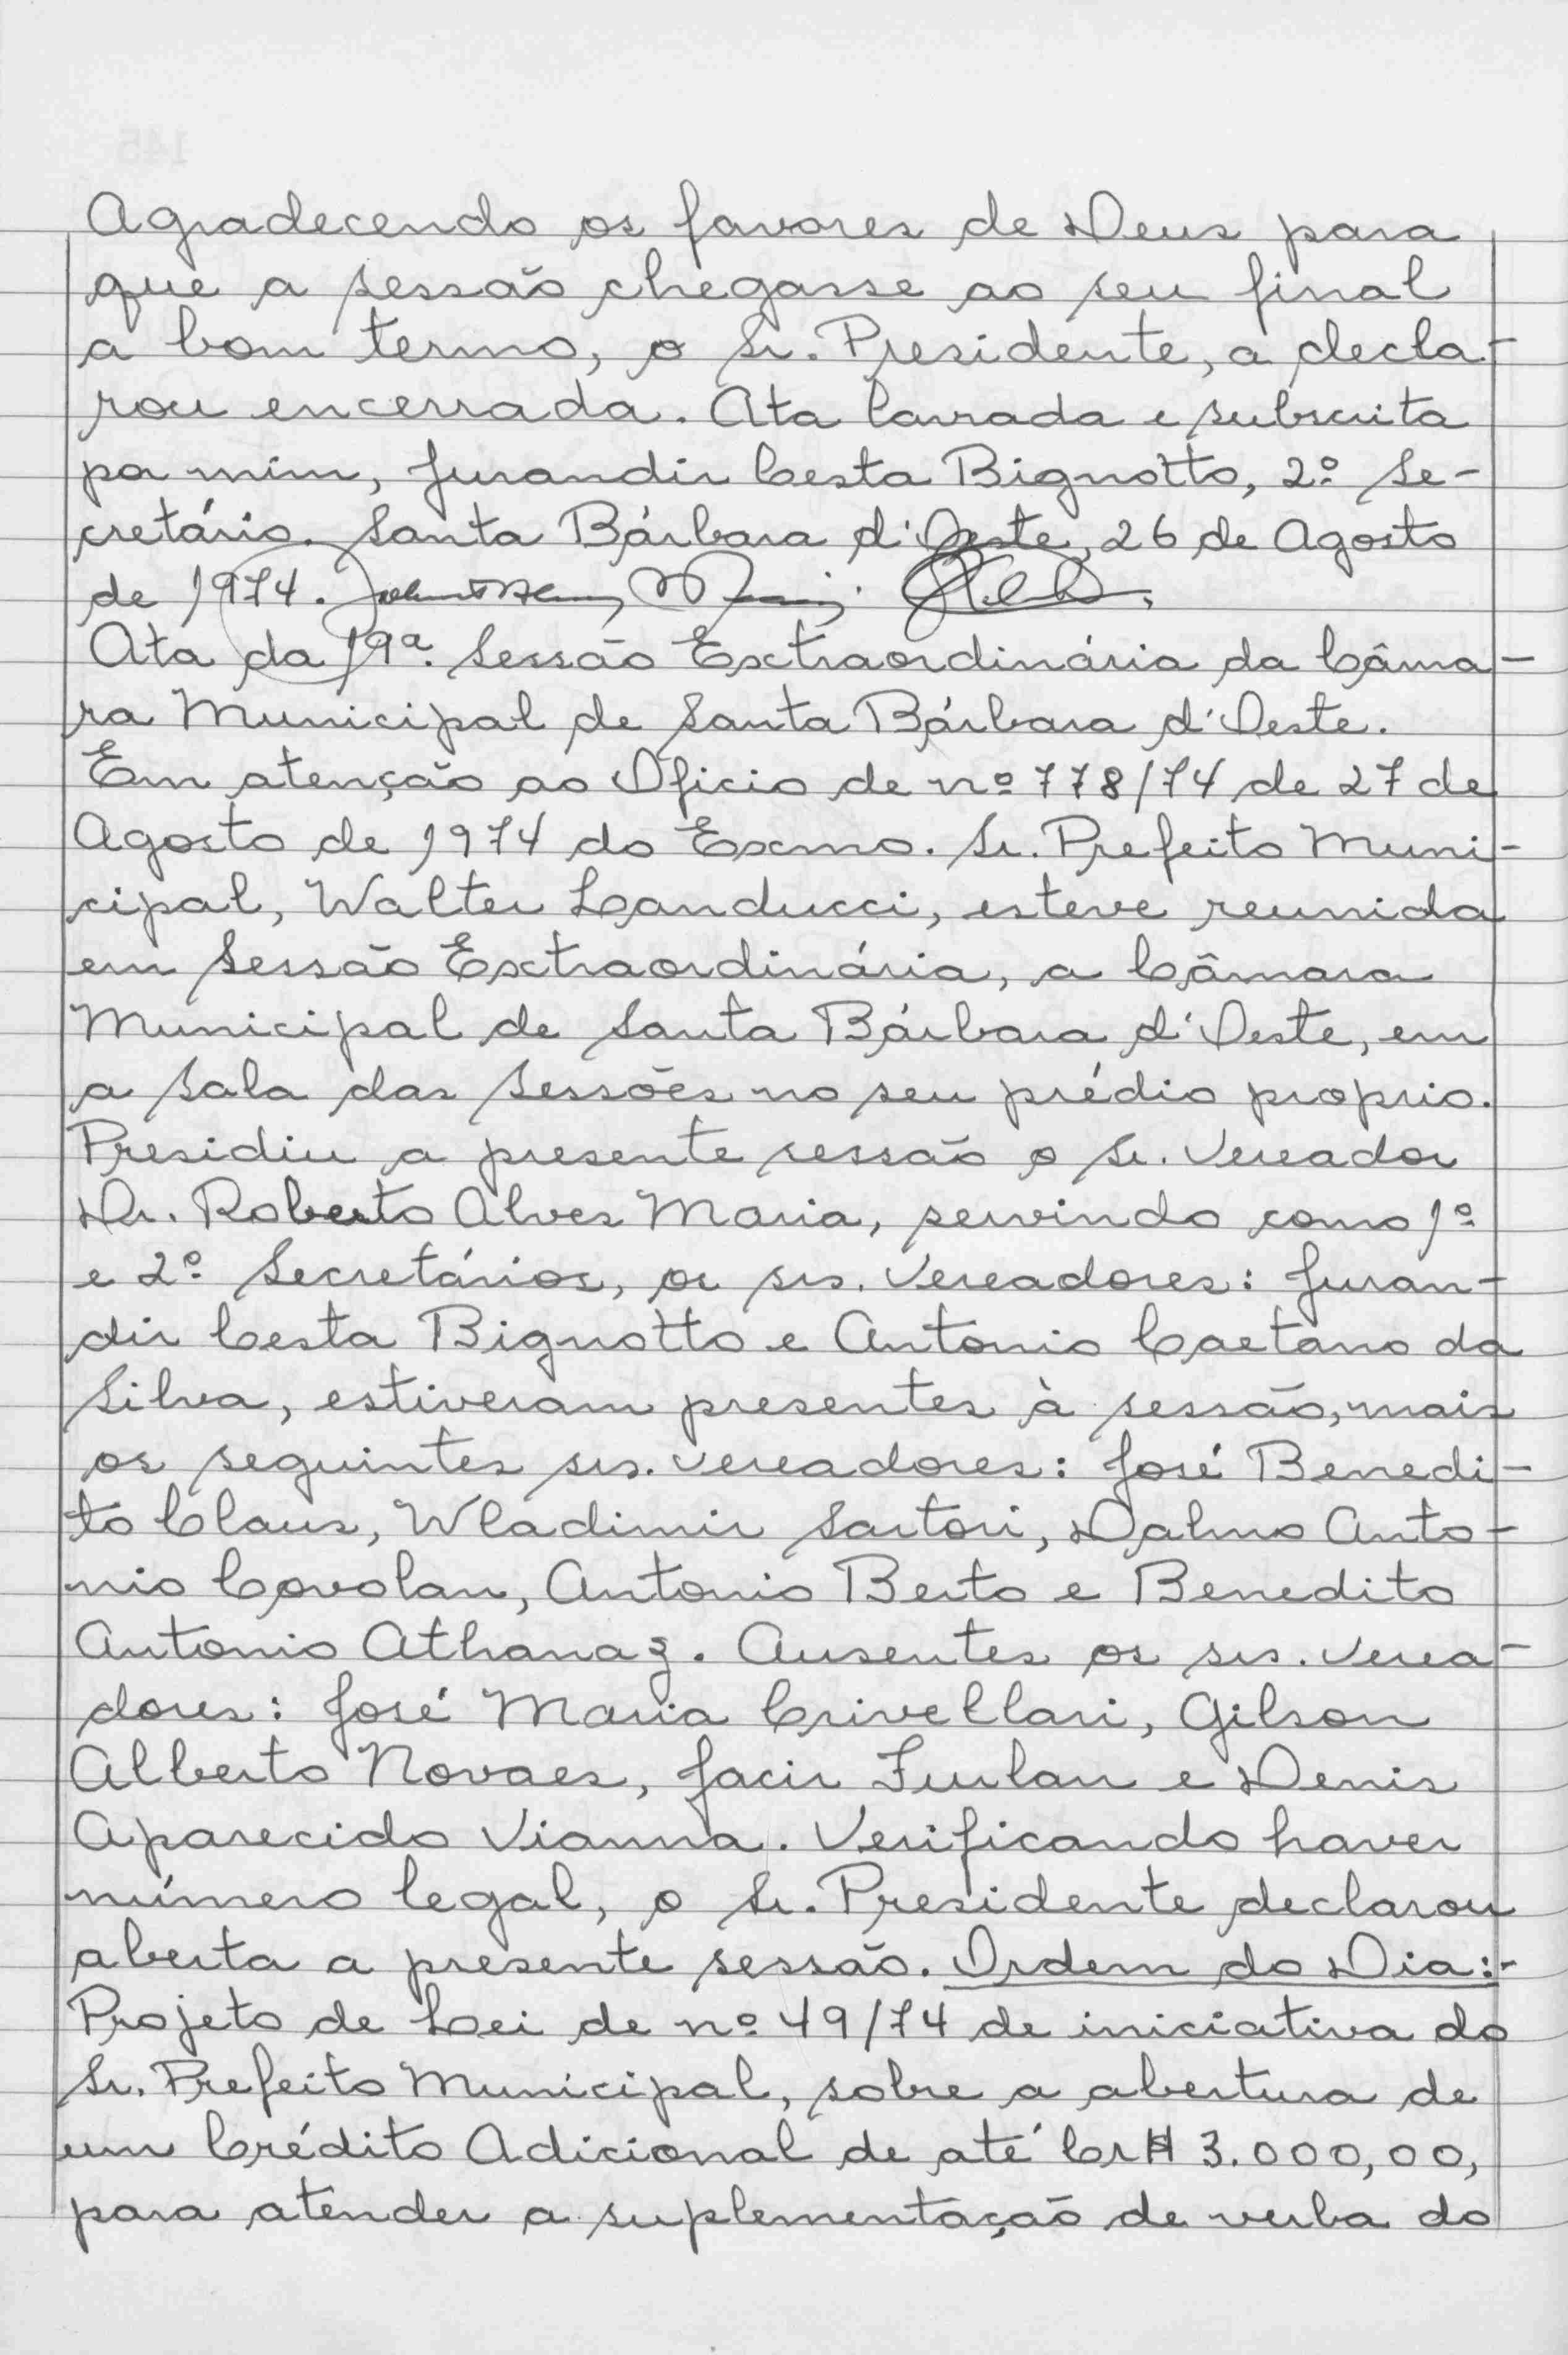 Agradecendo os favores de Deus para
que a sessão chegasse ao seu final
a bom termo, o Sr. Presidente, a decla-
rou encerrada. Ata lavrada e subscrita
por mim, Jurandir Cesta Bignotto, 2º Se-
cretário. Santa Bárbara d'Oeste, 26 de Agosto
de 1974.
Ata da 19ª. Sessão Extraordinária da Câma-
ra Municipal de Santa Bárbara d'Oeste.
Em atenção ao Oficio de nº 778/74 de 27 de
Agosto de 1974 do Exmo. Sr. Prefeito Muni-
cipal, Walter Landucci, esteve reunida
em Sessão Extraordinária, a Câmara
Municipal de Santa Bárbara d'Oeste, em
a Sala das Sessões no seu prédio proprio.
Presidiu a presente sessão o Sr. Vereador
Dr. Roberto Alves Maria, servindo como 1º
e 2º Secretários, os srs. Vereadores: Juran-
dir Cesta Bignotto e Antonio Caetano da
Silva, estiveram presentes à sessão, mais
os seguintes srs. vereadores: José Benedi-
to Claus, Wladimir Sartori, Dalmo Anto-
nio Covolan, Antonio Berto e Benedito
Antonio Athanaz. Ausentes os srs. verea-
dores: José Maria Crivellari, Gilson
Alberto Novaes, Jacir Furlan e Denis
Aparecido Vianna. Verificando haver
número legal, o Sr. Presidente declarou
aberta a presente sessão. Ordem do Dia:-
Projeto de Lei de nº 49/74 de iniciativa do
Sr. Prefeito Municipal, sobre a abertura de
um Crédito Adicional de até Cr$ 3.000,00,
para atender a suplementação de verba do